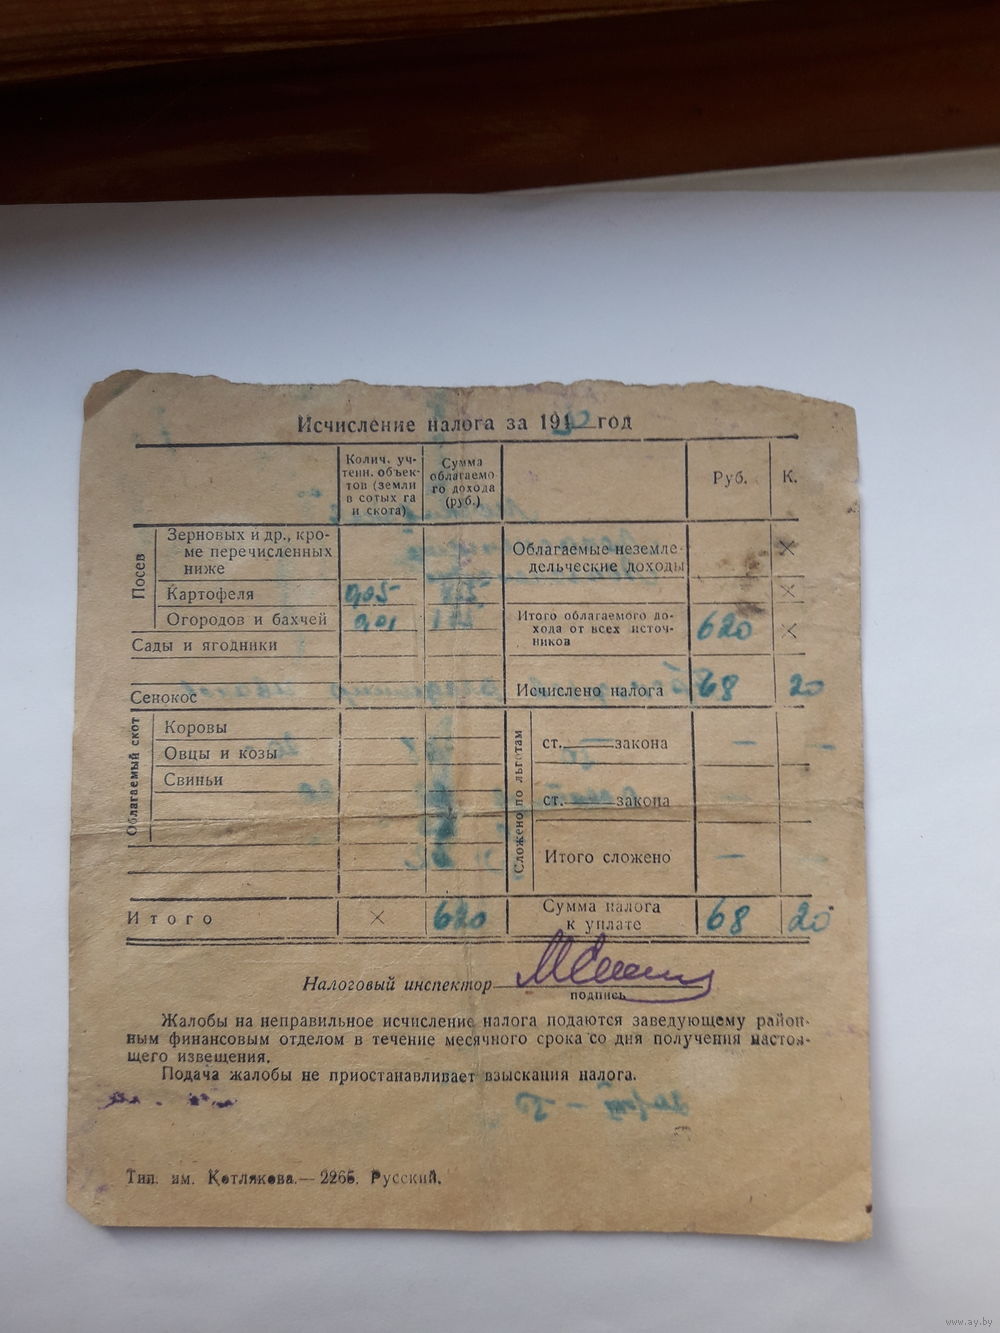 Исчисление налога за 191 год
Колич. уч-
тенн. объек-
тов (земли
в сотых га
и скота)
Сумма
облагаемо
го дохода
(руб.)
Руб.
К.
Посев
Зерновых и др., кро-
ме перечисленных
ниже
Облагаемые неземле-
дельческие доходы
×
Картофеля
0,05
×
Огородов и бахчей
0,01
Итого облагаемого до-
хода от всех источ-
ников
620
×
Сады и ягодники
Сенокос
Исчислено налога
68
20
Облагаемый скот
Коровы
Овцы и козы
Свиньи
Сложено по льготам
ст. закона
—
ст. закона
—
Итого сложено
—
Итого
×
620
Сумма налога
к уплате
68
20
Налоговый инспектор
подпись
Жалобы на неправильное исчисление налога подаются заведующему район-
ным финансовым отделом в течение месячного срока со дня получения настоя-
щего извещения.
Подача жалобы не приостанавливает взыскания налога.
Тип. им. Котлякова.— 2265. Русский.
www.ay.by